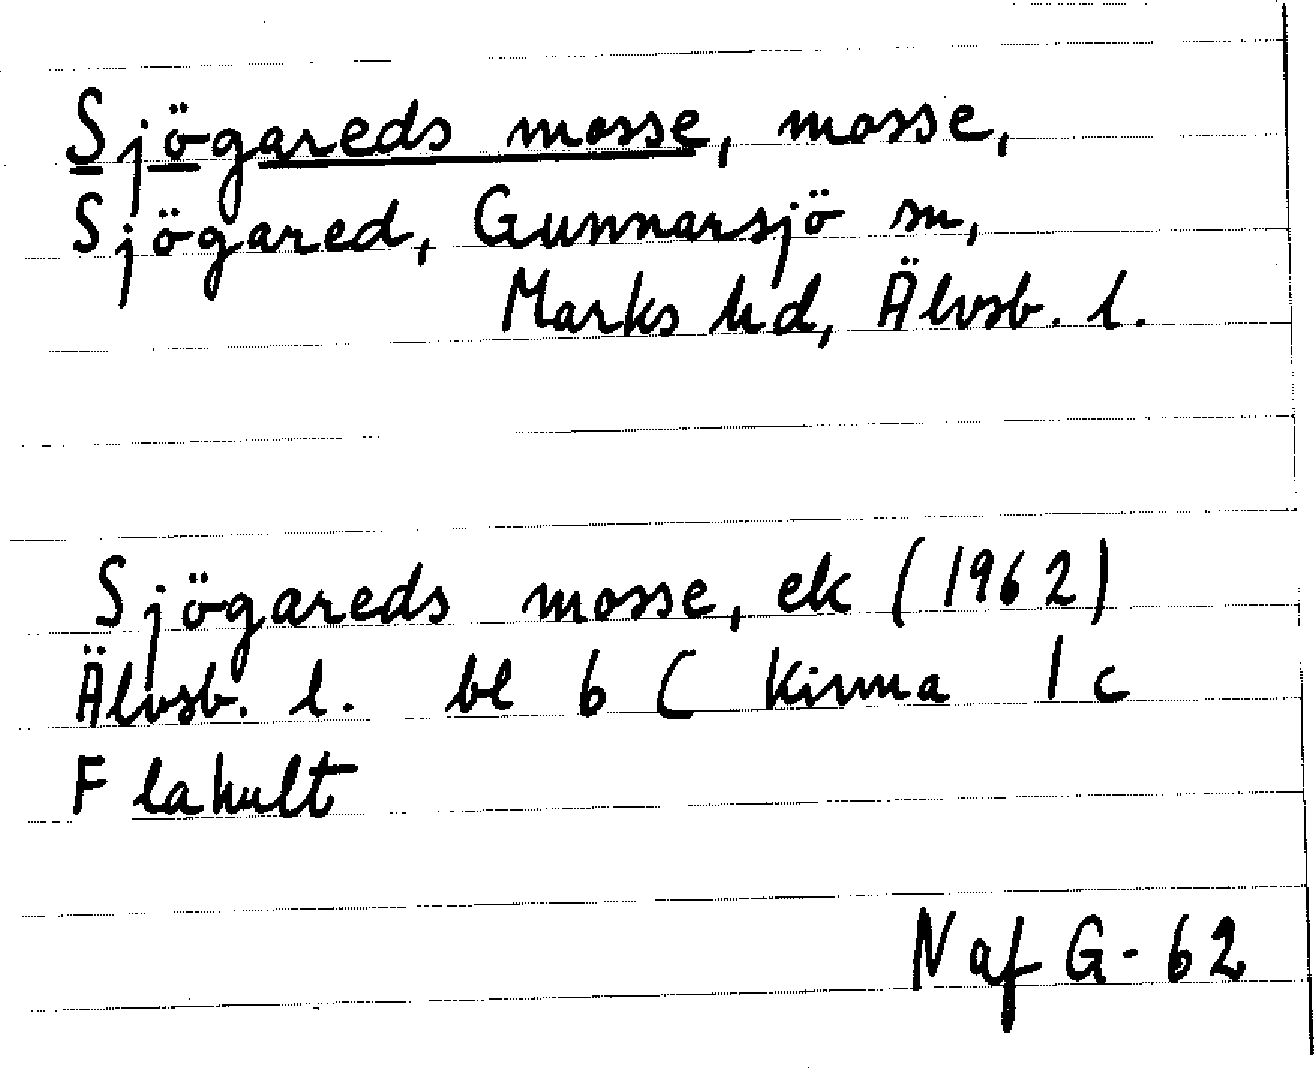 Sjögareds mosse, mosse,
Sjögared, Gunnarsjö sn,
Marks hd, Älvsb. l.
Sjögareds mosse, ek (1962)
Älvsb. l. bl 6 ( Kinna 1 c
Flahult
N af G-62